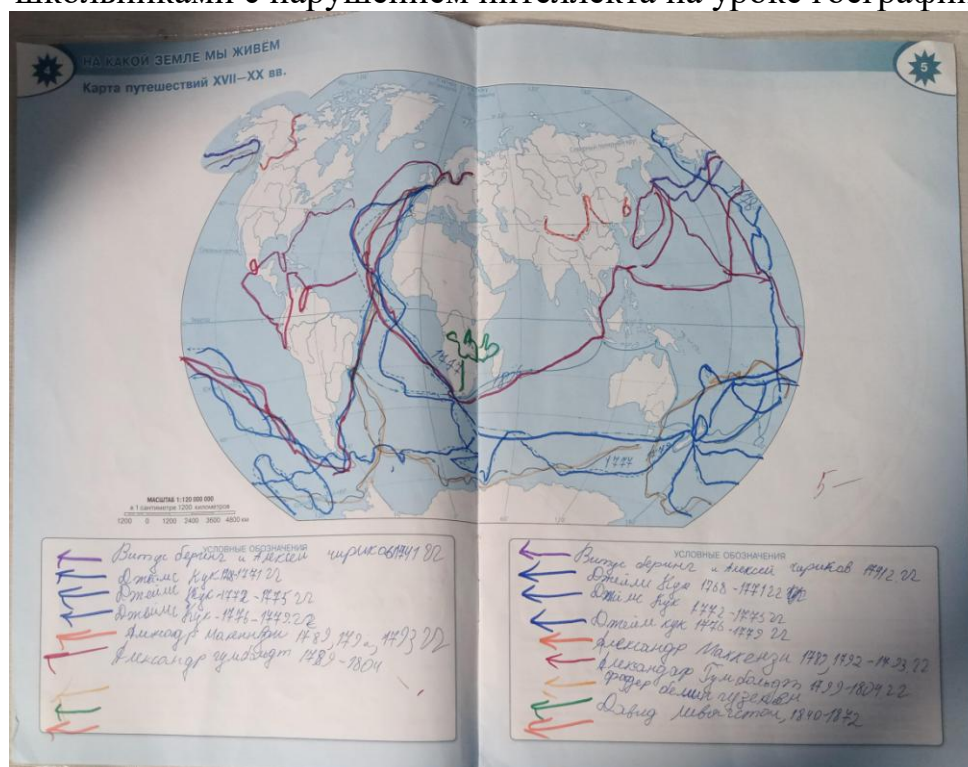 школьниками с нарушением интеллекта на уроке географии
4
НА КАКОЙ ЗЕМЛЕ МЫ ЖИВЁМ
Карта путешествий XVII—XX вв.
5
1777
5 —
МАСШТАБ 1:120 000 000
в 1 сантиметре 1200 километров
1200 0 1200 2400 3600 4800 км
УСЛОВНЫЕ ОБОЗНАЧЕНИЯ
Витус беринг и Алексей чириков 1741 гг
Джеймс Кук 1771 гг
Джеймс Кук-1772-1775 гг
Джеймс Кук-1776-1779 гг
Маккензи 1789, 1793 гг
Александр гумбольдт 1789-1804
УСЛОВНЫЕ ОБОЗНАЧЕНИЯ
Витус беринг и Алексей чириков гг
Джеймс Кук 1768-1771 гг
Джеймс Кук 1772-1775 гг
Джеймс кук 1776-1779 гг
Александр Маккензи 1789, 1792-1793 гг
Александр Гумбольдт 1799-1804 гг
Давид 1840-1872